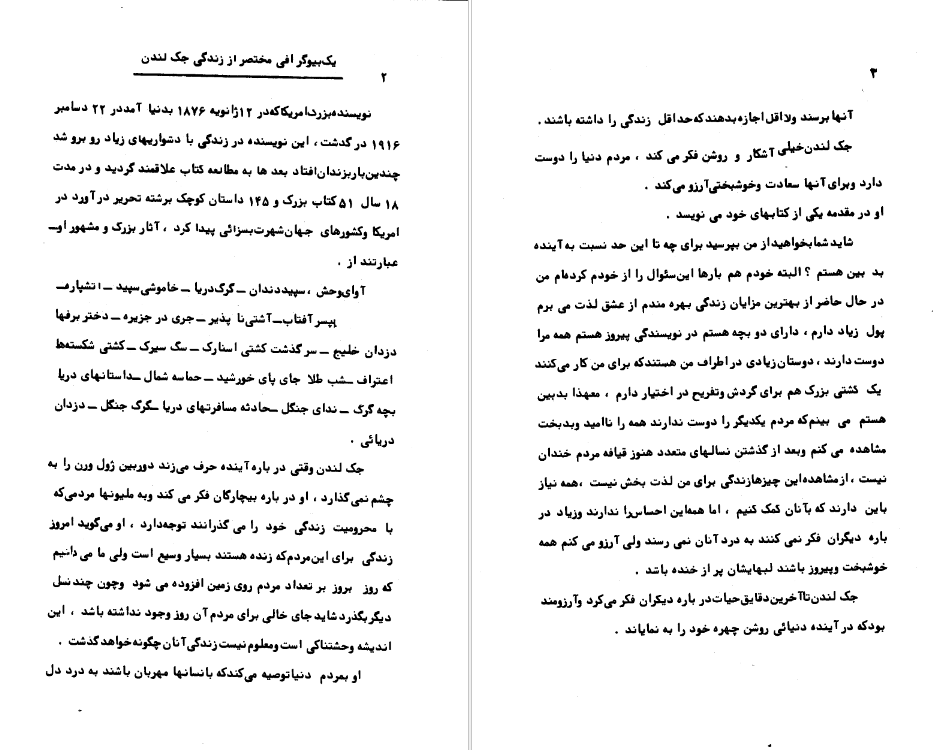 یک بیوگرافی مختصر از زندگی جک لندن
۲
نویسنده بزرد امریکا که در ۱۲ ژانویه ۱۸۷۶ بدنیا آمد در ۲۲ دسامبر
۱۹۱۶ در گذشت ، این نویسنده در زندگی با دشواریهای زیاد رو برو شد
چندین بار بزندان افتاد بعد ها به مطالعه کتاب علاقمند گردید و در مدت
۱۸ سال ۵۱ کتاب بزرک و ۱۴۵ داستان کوچک برشته تحریر در آورد در
امریکا وکشورهای جهان شهرت بسزائی پیدا کرد ، آثار بزرک و مشهور او ــ
عبارتند از .
آوای وحش ، سپید دندان ــ گرگ دریا ــ خاموشی سپید ــ اتشپاره ــ
پسر آفتاب ــ آشتی نا پذیر ــ جری در جزیره ــ دختر برفها
دزدان خلیج ــ سر گذشت کشتی اسنارک ــ سگ سیرک ــ کشتی شکسته‌ها
اعتراف ــ شب طلا جای پای خورشید ــ حماسه شمال ــ داستانهای دریا
بچه گرگ ــ ندای جنگل ــ حادثه مسافرتهای دریا ــ گرگ جنگل ــ دزدان
دریائی .
جک لندن وقتی در باره آینده حرف می زند دوربین ژول ورن را به
چشم نمی گذارد ، او در باره بیچارگان فکر می کند وبه ملیونها مردمی که
با محرومیت زندگی خود را می گذرانند توجه دارد ، او می گوید امروز
زندگی برای این مردم که زنده هستند بسیار وسیع است ولی ما می دانیم
که روز بروز بر تعداد مردم روی زمین افزوده می شود وچون چند نسل
دیگر بگذرد شاید جای خالی برای مردم آن روز وجود نداشته باشد ، این
اندیشه وحشتناکی است و معلوم نیست زندگی آنان چگونه خواهد گذشت .
او بمردم دنیا توصیه می کند که با نسانها مهربان باشند به درد دل
۳
آنها برسند ولا اقل اجازه بدهند که حداقل زندگی را داشته باشند .
جک لندن خیلی آشکار و روشن فکر می کند ، مردم دنیا را دوست
دارد وبرای آنها سعادت وخوشبختی آرزو می کند .
او در مقدمه یکی از کتابهای خود می نویسد .
شاید شما بخواهید از من بپرسید برای چه تا این حد نسبت به آینده
بد بین هستم ؟ البته خودم هم بارها این سئوال را از خودم کرده‌ام من
در حال حاضر از بهترین مزایان زندگی بهره مندم از عشق لذت می برم
پول زیاد دارم ، دارای دو بچه هستم در نویسندگی پیروز هستم همه مرا
دوست دارند ، دوستان زیادی در اطراف من هستند که برای من کار می کنند
یک کشتی بزرک هم برای گردش وتفریح در اختیار دارم ، معهذا بدبین
هستم می بینم که مردم یکدیگر را دوست ندارند همه را ناامید وبدبخت
مشاهده می کنم وبعد از گذشتن نسالهای متعدد هنوز قیافه مردم خندان
نیست ، از مشاهده این چیزها زندگی برای من لذت بخش نیست ، همه نیاز
باین دارند که بآنان کمک کنیم ، اما همه این احساس را ندارند وزیاد در
باره دیگران فکر نمی کنند به درد آنان نمی رسند ولی آرزو می کنم همه
خوشبخت وپیروز باشند لبهایشان پر از خنده باشد .
جک لندن تا آخرین دقایق حیات در باره دیکران فکر می کرد وآرزومند
بود که در آینده دنیائی روشن چهره خود را به نمایاند .